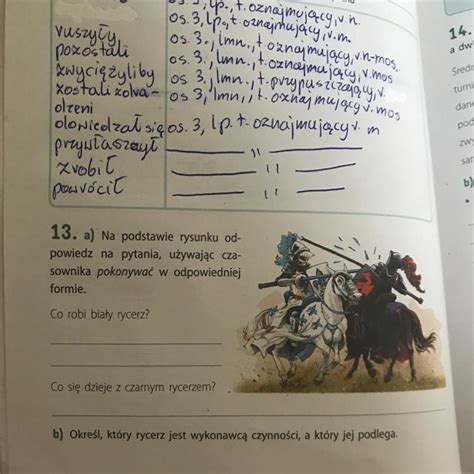 os. 3, lp., t. oznajmujący, r. n.
os. 3, lp., t. oznajmujący, r. m.
ruszyły os. 3., lmn., t. oznajmujący, r. n-mos.
pozostali os. 3., lmn., t. oznajmujący, r. mos
zwyciężyliby os. 3, lmn., t. przypuszczający, r.
zostali zobra- os 3, lmn,, t. oznajmujący r. mos
dzeni
dowiedział się os. 3, lp. t. oznajmujący r. m
przywłaszczył —— " ——
zrobił —— " ——
powrócił —— " ——
13. a) Na podstawie rysunku od-
powiedz na pytania, używając cza-
sownika pokonywać w odpowiedniej
formie.
Co robi biały rycerz?
Co się dzieje z czarnym rycerzem?
b) Określ, który rycerz jest wykonawcą czynności, a który jej podlega.
14.
a dw
turni
dan
pod
zwy
sar
b)